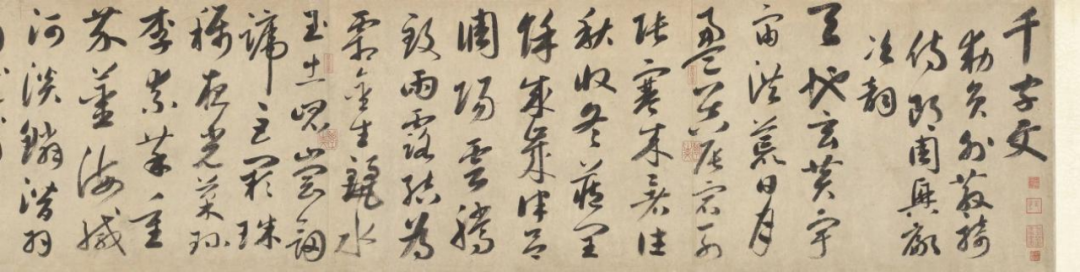 千字文
勑員外散騎
侍郎周興嗣
次韻
天地玄黃宇
宙洪荒日月
盈昃辰宿列
張寒來暑往
秋收冬藏閏
餘成歲律呂
調陽雲騰
致雨露結為
霜金生麗水
玉出崐崗劍
號巨闕珠
稱夜光菓珍
李柰菜重
芥薑海鹹
河淡鱗潛羽